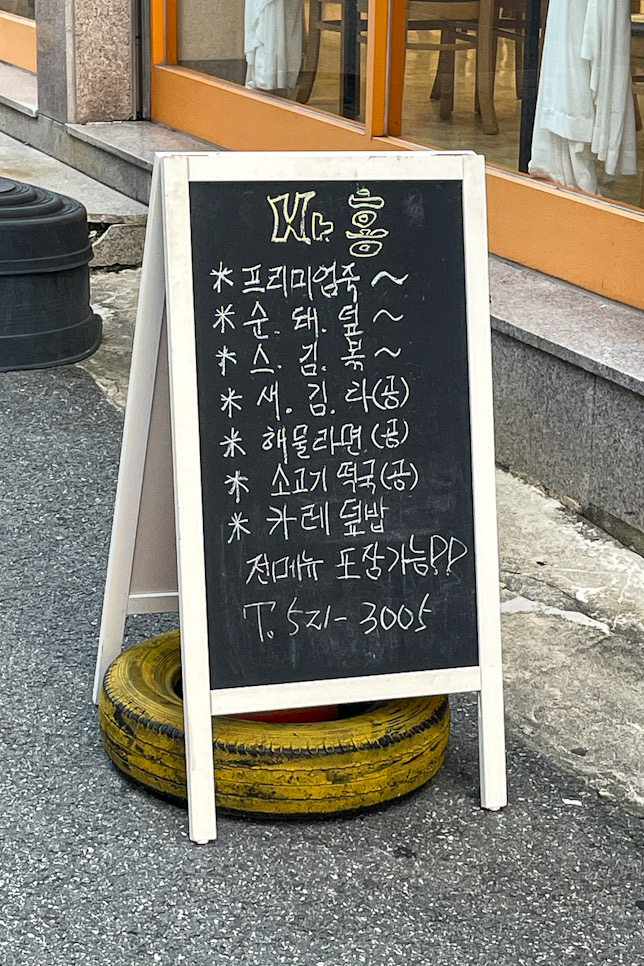 Mr. 흥
* 프리미엄죽 ~
* 순. 돼. 덮 ~
* 스. 김. 볶 ~
* 새. 김. 라(공)
* 해물라면.(공)
* 소고기 떡국(공)
* 카레 덮밥
전메뉴 포장가능!!
T. 521-3005